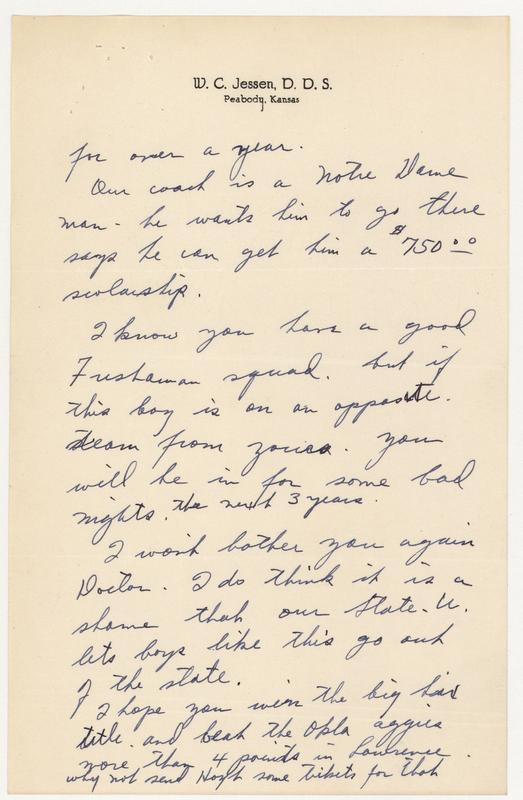 W. C. Jessen, D. D. S.
Peabody, Kansas
for over a year.
Our coach is a Notre Dame
man - he wants him to go there
says he can get him a $750.00
scolarship.
I know you have a good
Freshaman squad. but if
this boy is on an opposite.
team from yours. you
will be in for some bad
nights. the next 3 years.
I won't bother you again
Doctor. I do think it is a
shame that our State. U.
lets boys like this go out
of the state.
I hope you win the big six
title. and beat the Okla aggies
more than 4 points in Lawrence.
why not send Hoyt some tickets for that